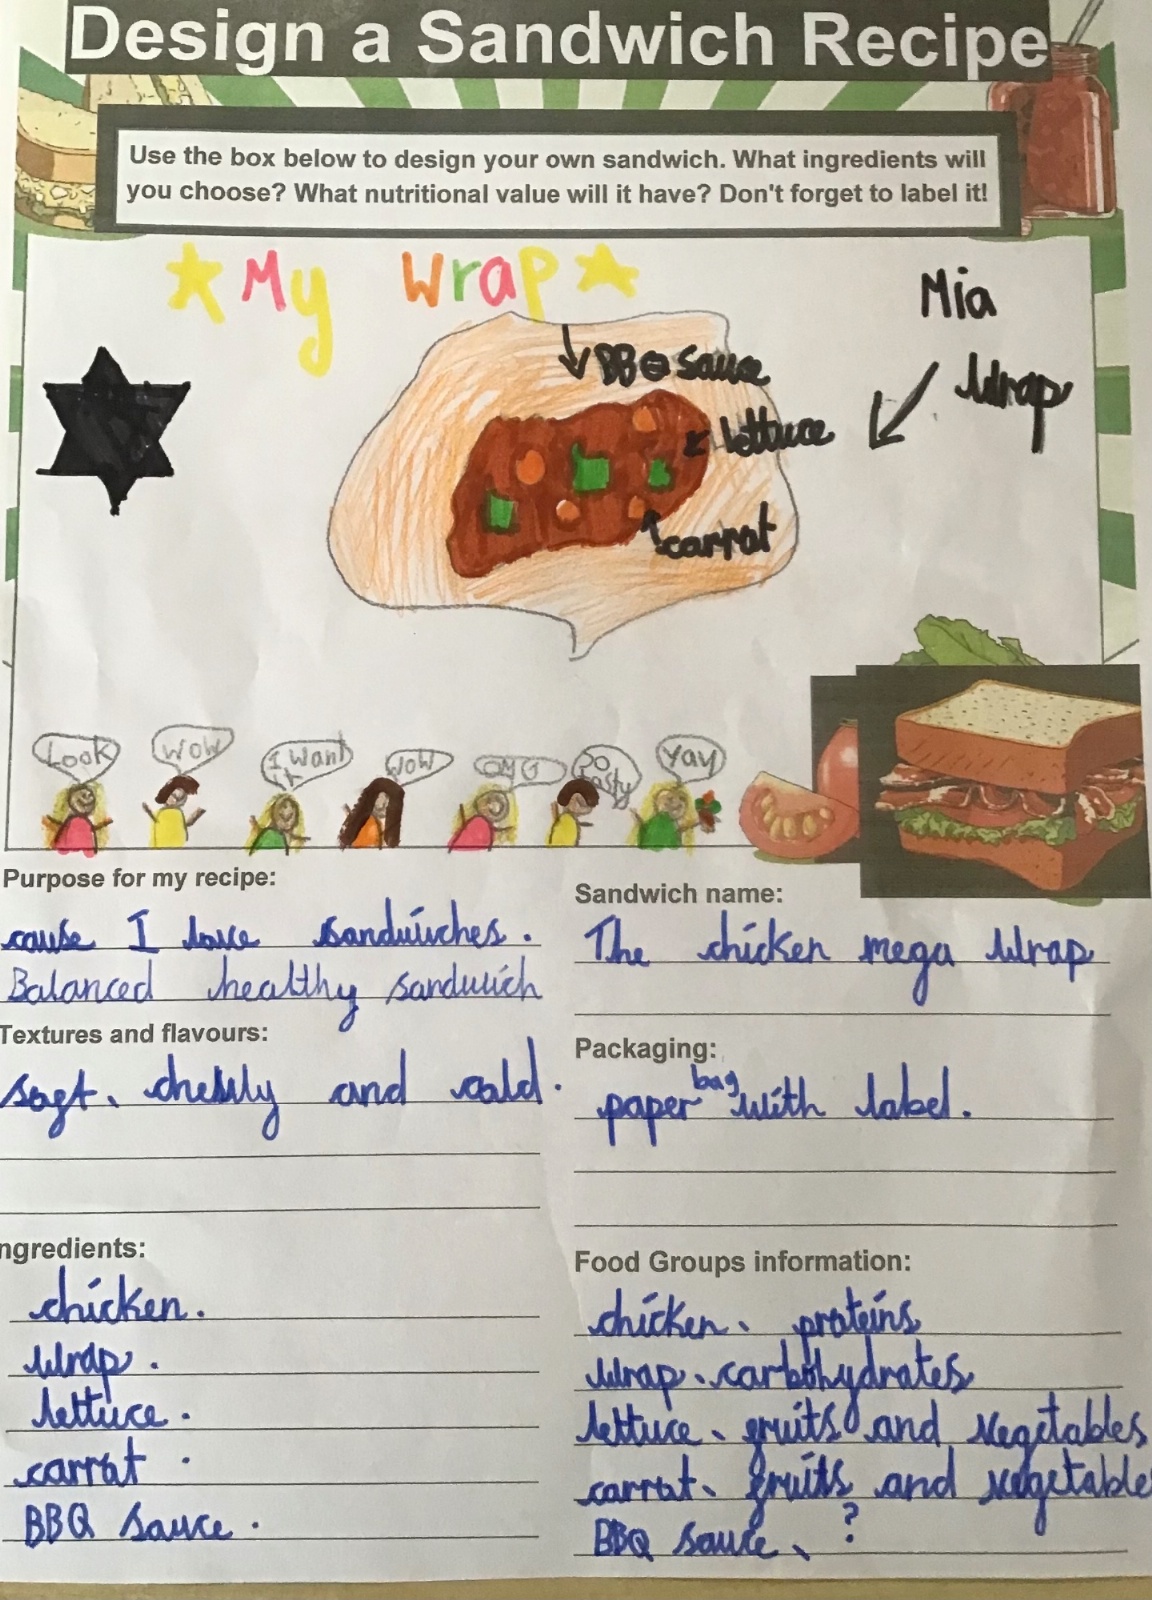 Design a Sandwich Recipe
Use the box below to design your own sandwich. What ingredients will
you choose? What nutritional value will it have? Don't forget to label it!
My Wrap
Mia
BBQ Sauce
Wrap
lettuce
carrot
Look
Wow
I Want It
Wow
OMG
So tasty
Yay
Purpose for my recipe:
cause I love sandwiches.
Balanced healthy sandwich
Sandwich name:
The chicken mega Wrap
Textures and flavours:
soft, and cold.
Packaging:
paper bag with label.
ngredients:
chicken.
wrap.
lettuce.
carrot.
BBQ sauce.
Food Groups information:
chicken, proteins
Wrap, carbohydrates
lettuce, fruits and vegetables
carrot, fruits and vegetable
BBQ sauce, ?